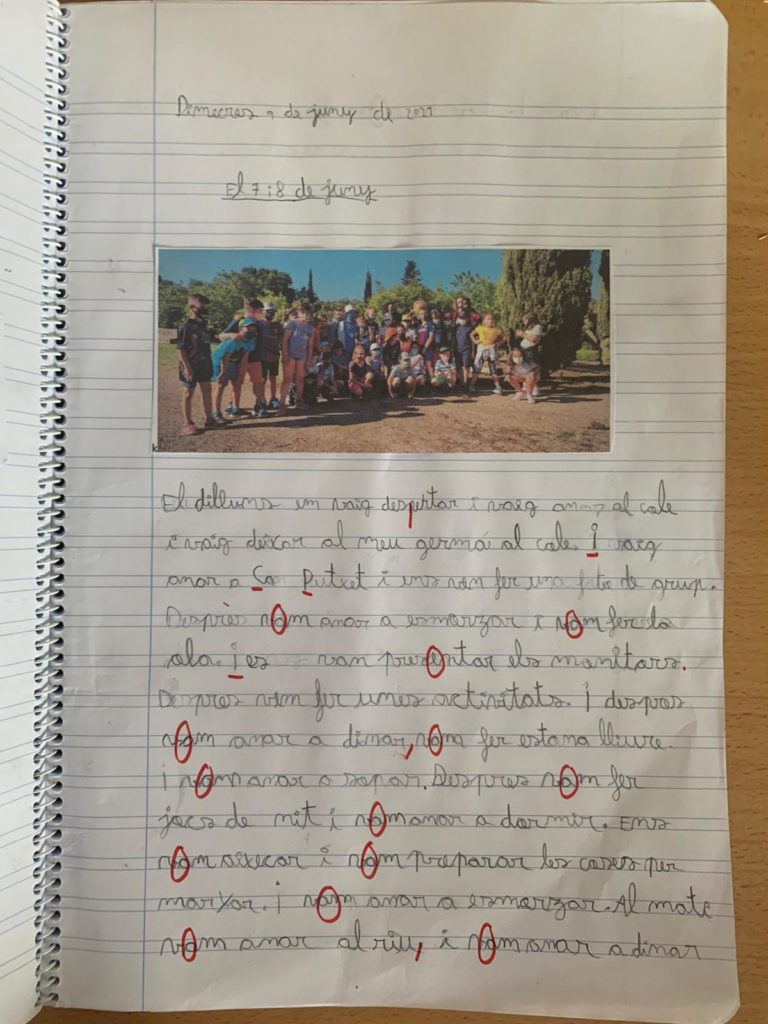 Dimecres 9 de juny de 2021
El 7 i 8 de juny
El dilluns em vaig despertar i vaig anar al cole
i vaig deixar al meu germá al cole. i vaig
anar a Can Putxet i ens van fer una foto de grup.
Desprès vam anar a esmarzar i vam fer la
ola. i es van presentar els monitors.
Despres vam fer unes activitats. i despres
vam anar a dinar, vam fer estona lliure.
i vam anar a sopar. Despres vam fer
jocs de nit i vam anar a dormir. Ens
vam aixecar i vam preparar les coses per
marxar. i vam anar a esmarzar. Al mati
vam anar al riu, i vam anar a dinar